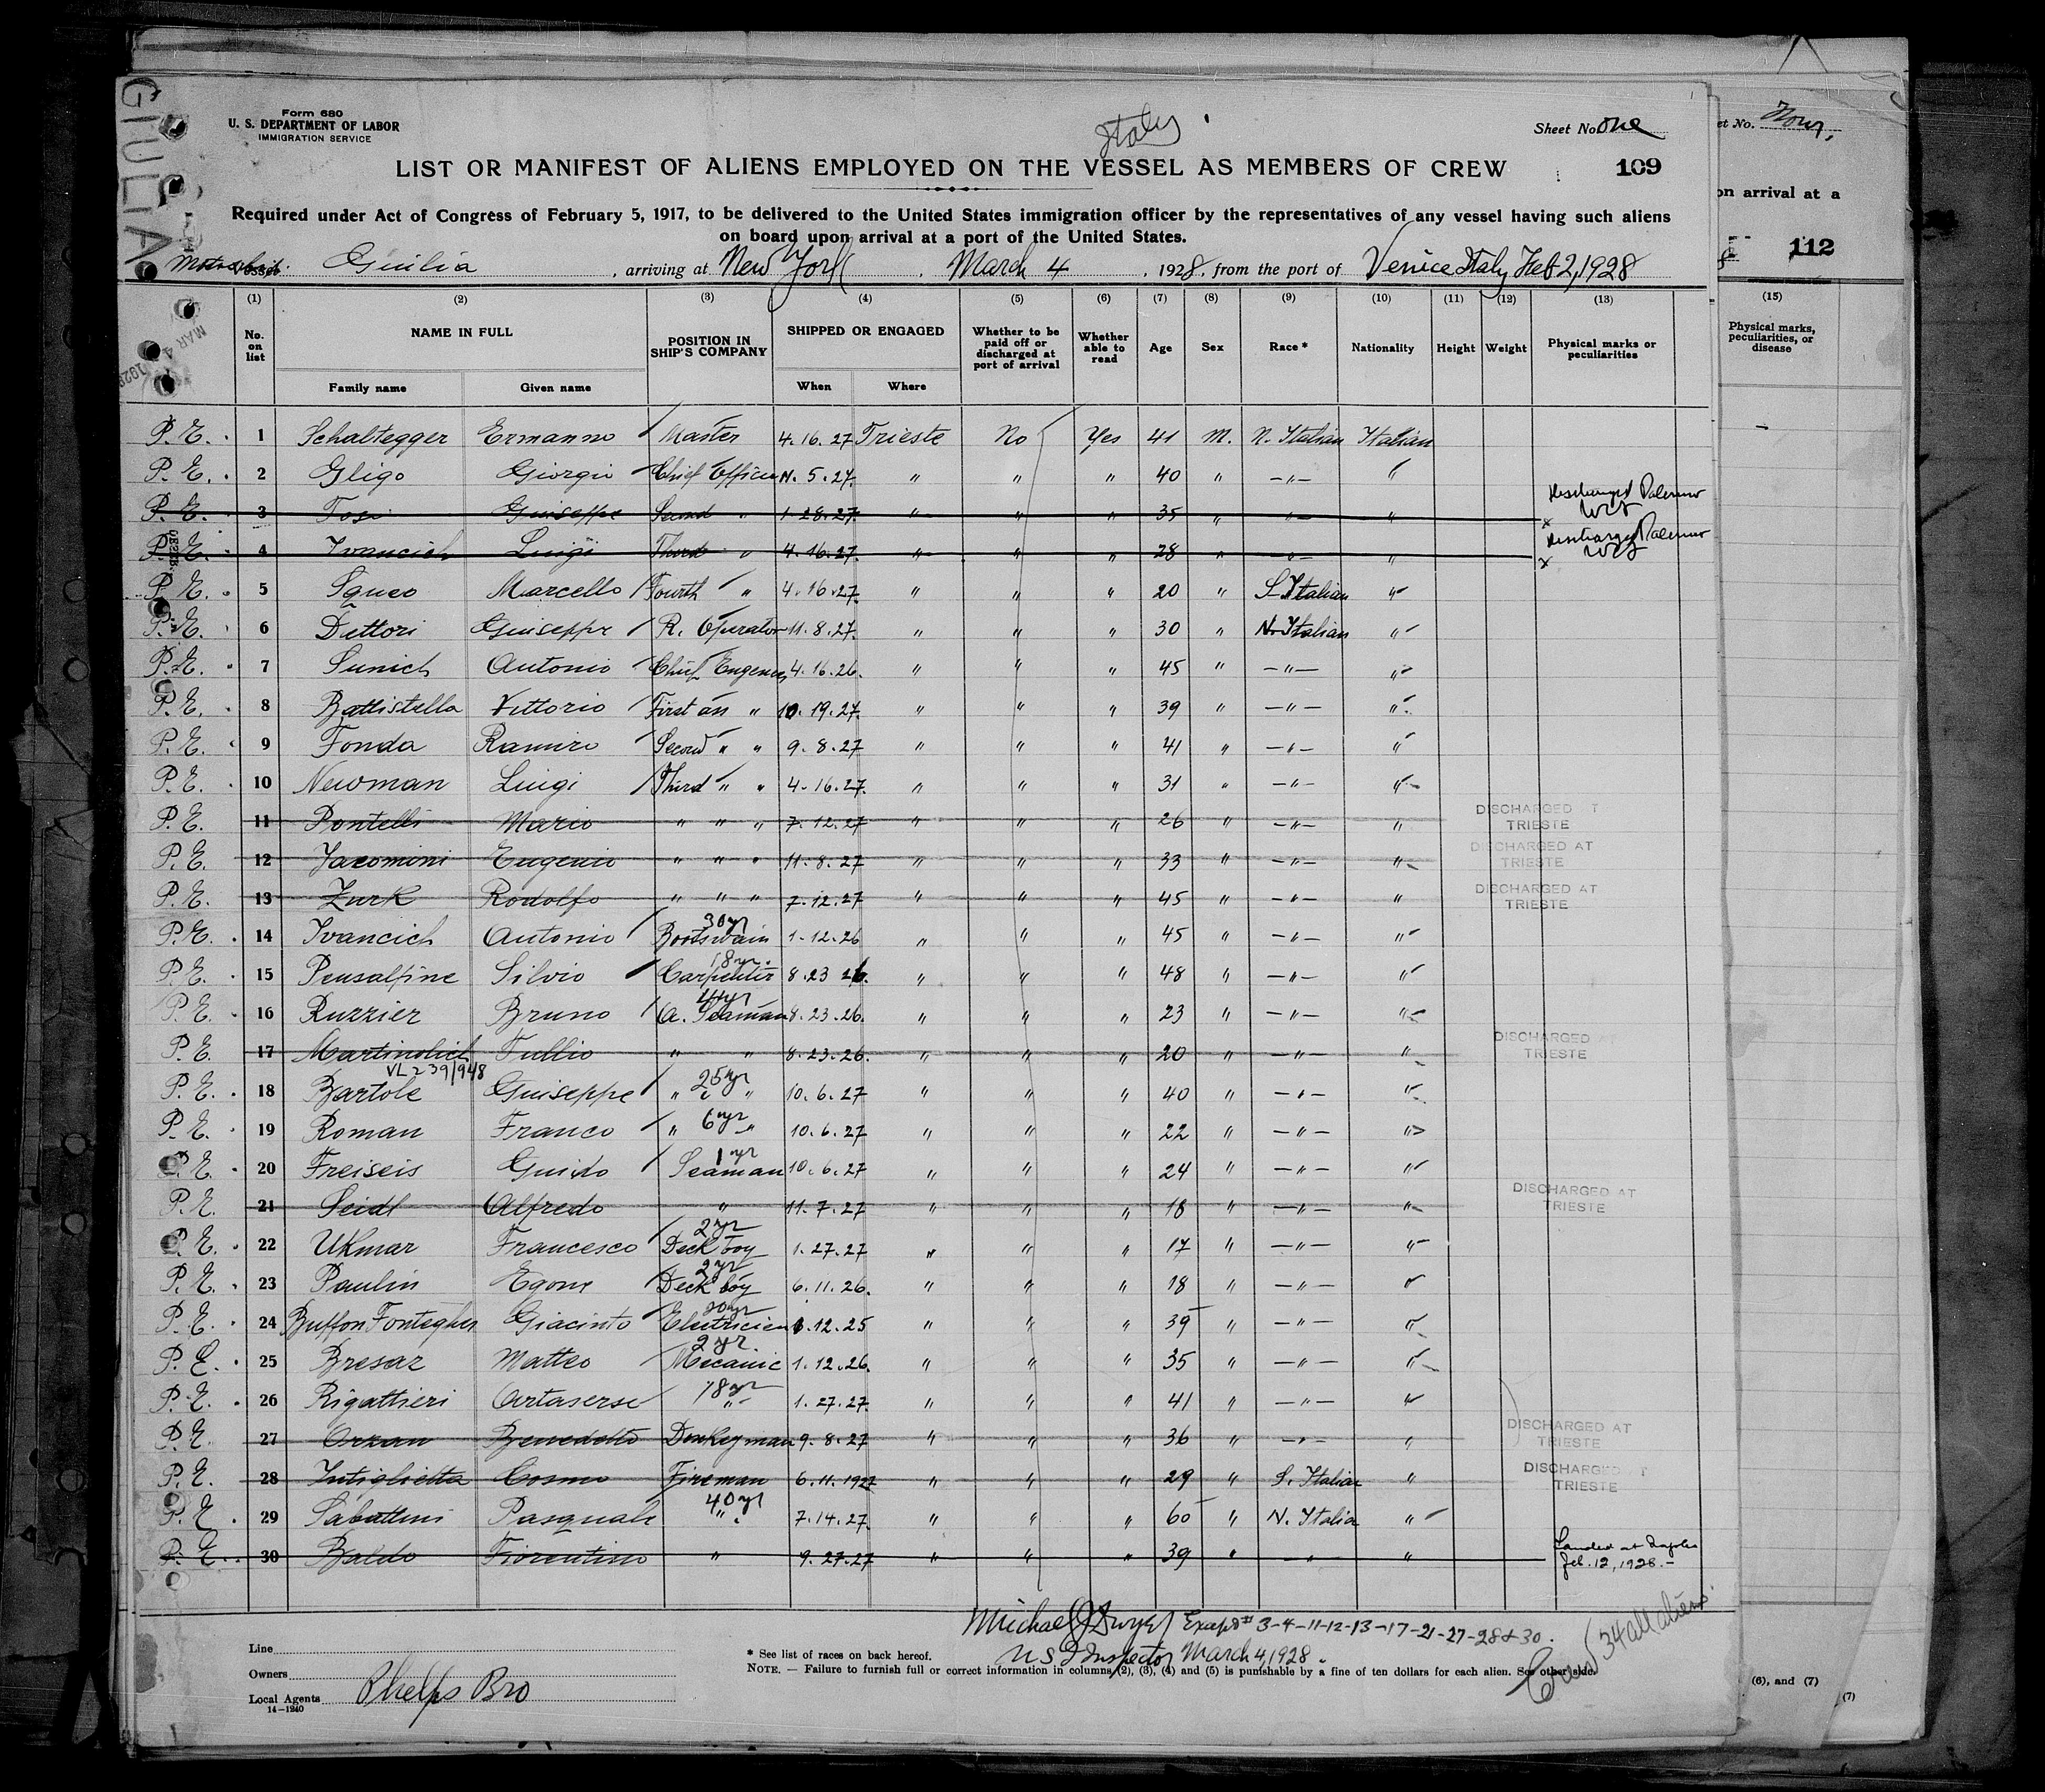 GIULIA
Form 680
U. S. DEPARTMENT OF LABOR
IMMIGRATION SERVICE
Italy
Sheet No. One
LIST OR MANIFEST OF ALIENS EMPLOYED ON THE VESSEL AS MEMBERS OF CREW
109
Required under Act of Congress of February 5, 1917, to be delivered to the United States immigration officer by the representatives of any vessel having such aliens
on board upon arrival at a port of the United States.
Giulia, arriving at New York, March 4, 1928, from the port of Venice Italy Feb 2, 1928
MAR 4 1928
(1) (2) (3) (4) (5) (6) (7) (8) (9) (10) (11) (12) (13)
No. on list NAME IN FULL Family name Given name POSITION IN SHIP'S COMPANY SHIPPED OR ENGAGED When Where Whether to be paid off or discharged at port of arrival Whether able to read Age Sex Race* Nationality Height Weight Physical marks or peculiarities
P.E. 1 Schaltegger Ermanno Master 4.16.27 Trieste No Yes 41 M. N. Italian Italian
P.E. 2 Gligo Giorgio Chief Officer 11.5.27 " " " 40 " -"- "
P.E. 3 Tosi Giuseppe Second " 1.28.27 " " " 35 " -"- " x Discharged Palermo
P.E. 4 Ivancich Luigi Third " 4.16.27 " " " 28 " -"- " x Discharged Palermo
P.E. 5 Sgueo Marcello Fourth " 4.16.27 " " " 20 " S Italian "
P.E. 6 Dettori Giuseppe R. Operator 11.8.27 " " " 30 " N. Italian "
P.E. 7 Sunich Antonio Chief Engeneer 4.16.26 " " " 45 " -"- "
P.E. 8 Battistella Vittorio First as " 10.19.27 " " " 39 " -"- "
P.E. 9 Fonda Ramiro Second " " 9.8.27 " " " 41 " -"- "
P.E. 10 Newman Luigi Third " " 4.16.27 " " " 31 " -"- "
P.E. 11 Pontelli Mario " " " 7.12.27 " " " 26 " -"- " DISCHARGED T TRIESTE
P.E. 12 Jacomini Eugenio " " " 11.8.27 " " " 33 " -"- " DISCHARGED AT TRIESTE
P.E. 13 Zurk Rodolfo " " " 7.12.27 " " " 45 " -"- " DISCHARGED AT TRIESTE
P.E. 14 Ivancich Antonio 30yr Bootswain 1.12.26 " " " 45 " -"- "
P.E. 15 Pensalfine Silvio 18yr. Carpenter 8.23.26. " " " 48 " -"- "
P.E. 16 Ruzzier Bruno 4yr A. Seaman 8.23.26. " " " 23 " -"- "
P.E. 17 Martinolich Tullio " " 8.23.26. " " " 20 " -"- " DISCHARGED A TRIESTE
VL 239/948
P.E. 18 Bartole Giuseppe 25yr " " 10.6.27 " " " 40 " -"- "
P.E. 19 Roman Franco 6yr " " 10.6.27 " " " 22 " -"- "
P.E. 20 Freiseis Guido 1yr Seaman 10.6.27 " " " 24 " -"- "
P.E. 21 Seidl Alfredo " 11.7.27 " " " 18 " -"- " DISCHARGED AT TRIESTE
P.E. 22 Ukmar Francesco 2yr Deck boy 1.27.27 " " " 17 " -"- "
P.E. 23 Paulin Egone 2yr Deck boy 6.11.26. " " " 18 " -"- "
P.E. 24 Buffon Fontegher Giacinto 20yr Electricien 1.12.25 " " " 39 " -"- "
P.E. 25 Bresaz Matteo 2yr. Mecanic 1.12.26. " " " 35 " -"- "
P.E. 26 Rigattieri Artaserse 18yr " 1.27.27 " " " 41 " -"- "
P.E. 27 Orzan Benedetto Donkeyman 9.8.27 " " " 36 " -"- " DISCHARGED AT TRIESTE
P.E. 28 Intiglietta Cosmo Fireman 6.11.1927 " " " 29 " S. Italian " DISCHARGED T TRIESTE
P.E. 29 Sabattini Pasquale 40yr " 7.14.27. " " " 60 " N. Italia "
P.E. 30 Baldo Fiorentino " 9.27.27 " " " 39 " -"- " Landed at Naples Feb. 12, 1928.-
Michael J Dwyer Except # 3-4-11-12-13-17-21-27-28 & 30.
U S I Inspector March 4, 1928.
Crew 34 all aliens
Line
Owners
Local Agents Phelps Bro
14-1240
* See list of races on back hereof.
NOTE. — Failure to furnish full or correct information in columns (2), (3), (4) and (5) is punishable by a fine of ten dollars for each alien. See other side.
et No. Four.
on arrival at a
112
(15)
Physical marks, peculiarities, or disease
(6), and (7)
(7)